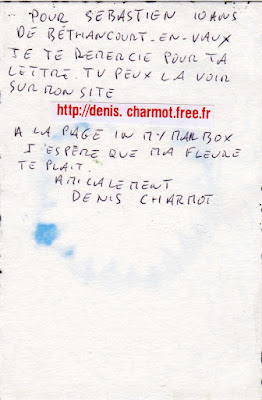 POUR SEBASTIEN 10 ANS
DE BÉTHANCOURT-EN-VAUX
JE TE REMERCIE POUR TA
LETTRE. TU PEUX LA VOIR
SUR MON SITE
http://denis. charmot.free.fr
A LA PAGE IN MY MAILBOX
J'ESPÈRE QUE MA FLEURE
TE PLAIT.
AMICALEMENT
DENIS CHARMOT